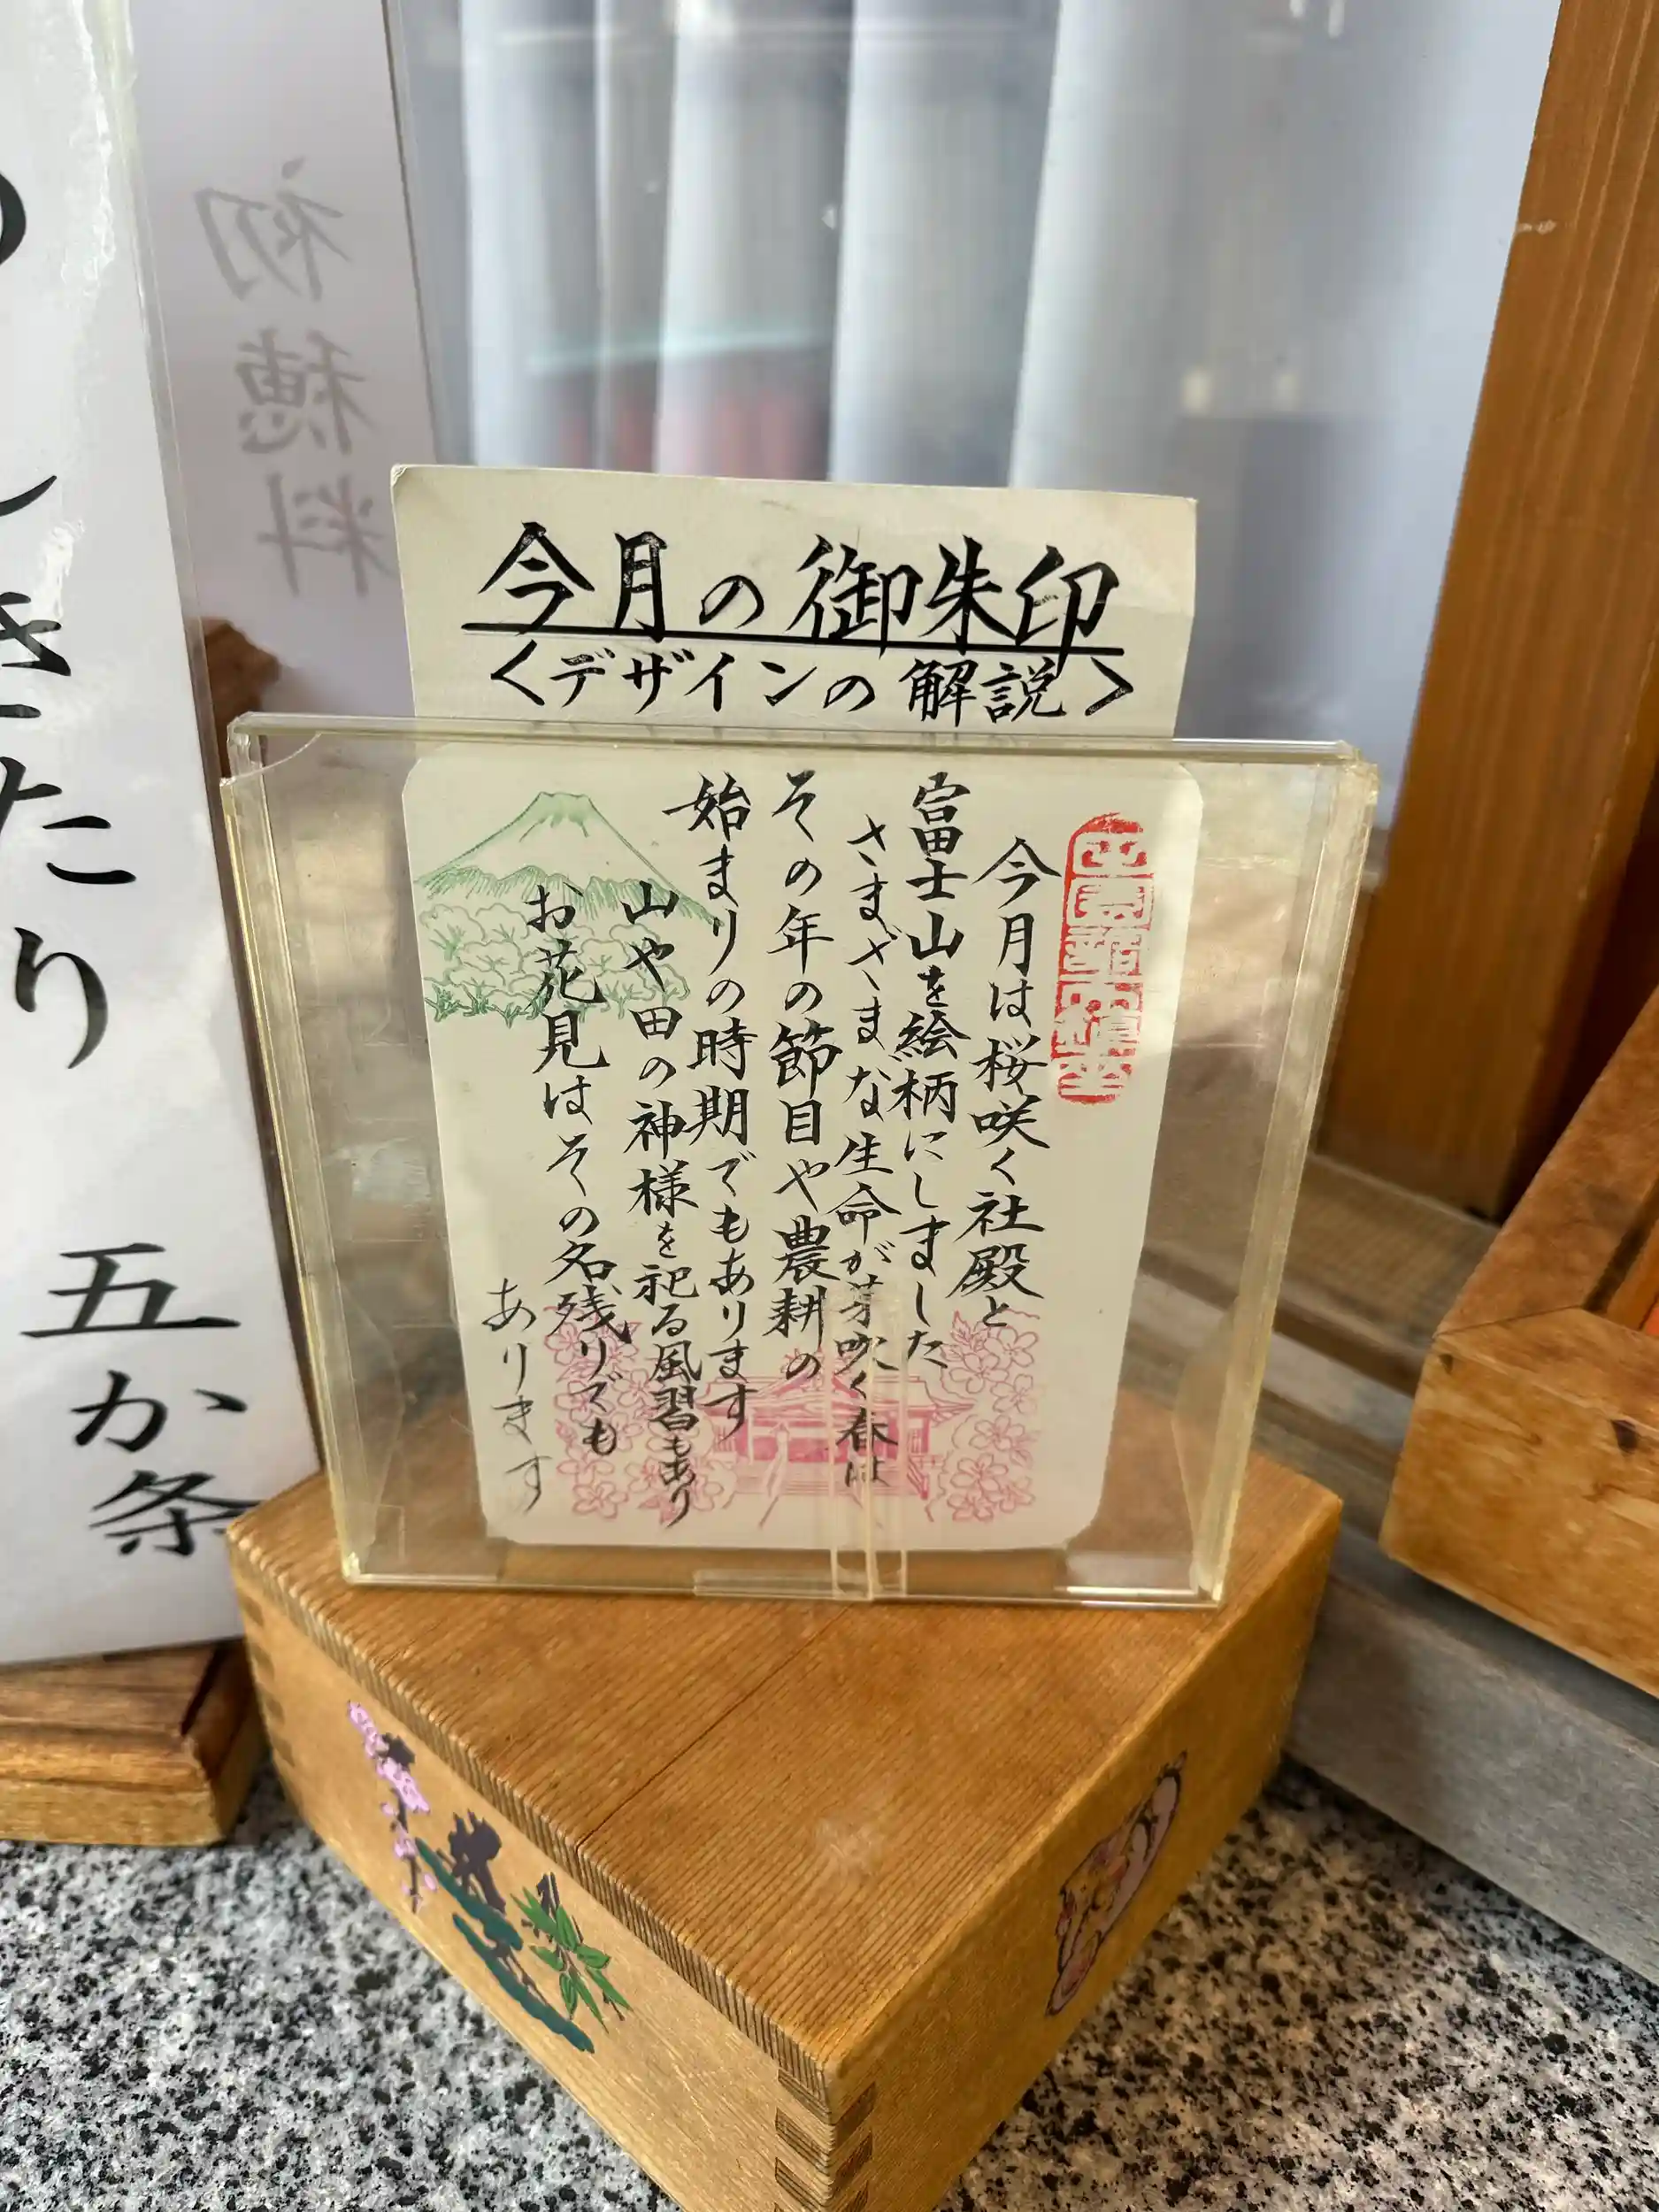 今月の御朱印
<デザインの解説>
今月は桜咲く社殿と
富士山を絵柄にしました
さまざまな生命が芽吹く春は
その年の節目や農耕の
始まりの時期でもあります
山や田の神様を祀る風習もあり
お花見はその名残りでも
あります
初穂料
きたり
五か条